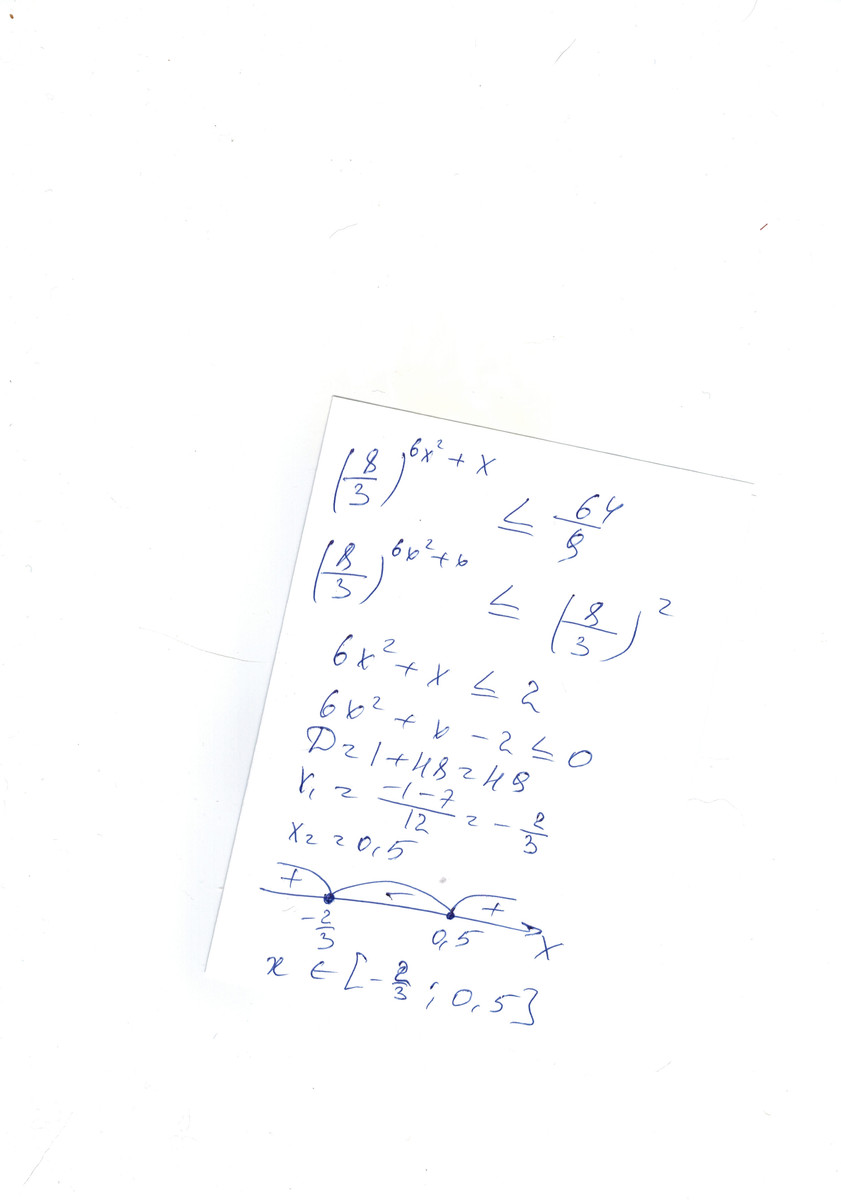 (8/3)^(6x²+x) ≤ 64/9
(8/3)^(6x²+x) ≤ (8/3)²
6x²+x ≤ 2
6x²+x-2 ≤ 0
D=1+48=49
x₁ = (-1-7)/12 = -2/3
x₂=0,5
+ - +
-2/3 0,5 x
x ∈ [-2/3; 0,5]